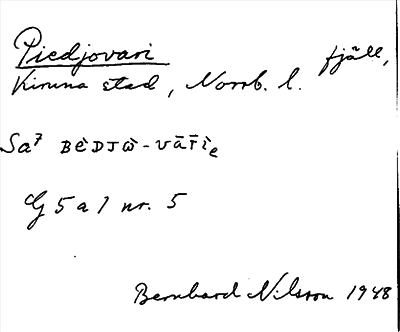 Piedjovari fjäll,
Kiruna stad, Norrb. l.
Sa7 BÈDJÒ̄-vār̄ìe
G 5 a 1 nr. 5
Bernhard Nilsson 1948